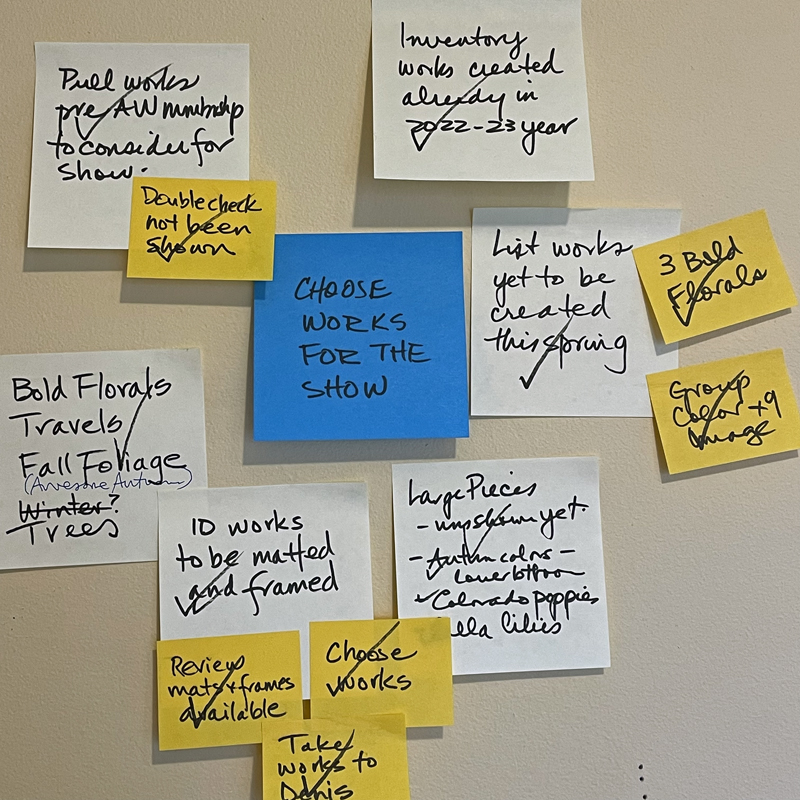 Pull works
pre AW membership
to consider for
show.
Inventory
works created
already in
2022-23 year
Double check
not been
shown
CHOOSE
WORKS
FOR THE
SHOW
List works
yet to be
created
this spring
3 Bold
Florals
Group
Color +9
Image
Bold Florals
Travels
Fall Foliage
(Awesome Autumn)
Winter?
Trees
10 works
to be matted
and framed
Large Pieces
- unshown yet.
- Autumn colors -
- Colorado poppies
lla lilies
Review
mats + frames
available
Choose
works
Take
works to
Denis